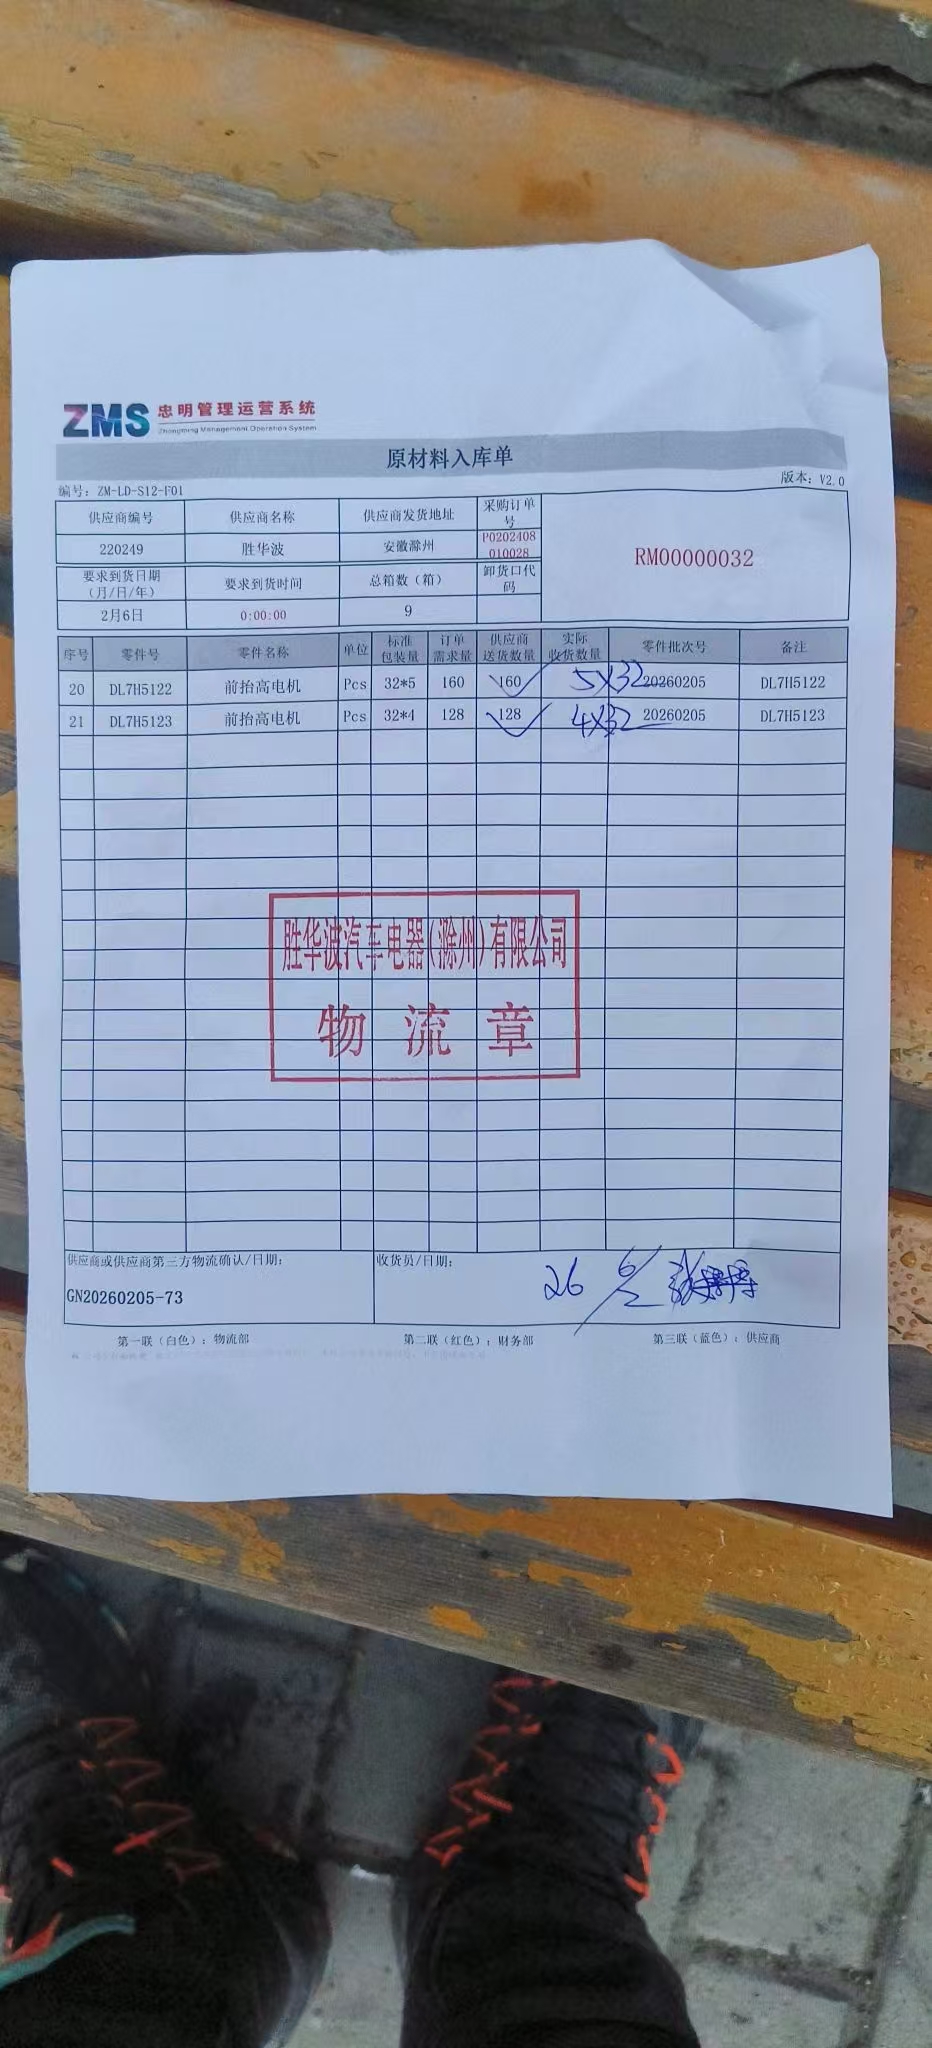 ZMS 忠明管理运营系统
Zhongming Management Operation System
原材料入库单
编号：ZM-LD-S12-F01
版本：V2.0
供应商编号 供应商名称 供应商发货地址 采购订单号
220249 胜华波 安徽滁州 P0202408010028
RM00000032
要求到货日期（月/日/年） 要求到货时间 总箱数（箱） 卸货口代码
2月6日 0:00:00 9
序号 零件号 零件名称 单位 标准包装量 订单需求量 供应商送货数量 实际收货数量 零件批次号 备注
20 DL7H5122 前抬高电机 Pcs 32*5 160 160 5×32 20260205 DL7H5122
21 DL7H5123 前抬高电机 Pcs 32*4 128 128 4×32 20260205 DL7H5123
胜华波汽车电器(滁州)有限公司
物流章
供应商或供应商第三方物流确认/日期：
GN20260205-73
收货员/日期：
26 6/2
第一联（白色）：物流部 第二联（红色）：财务部 第三联（蓝色）：供应商